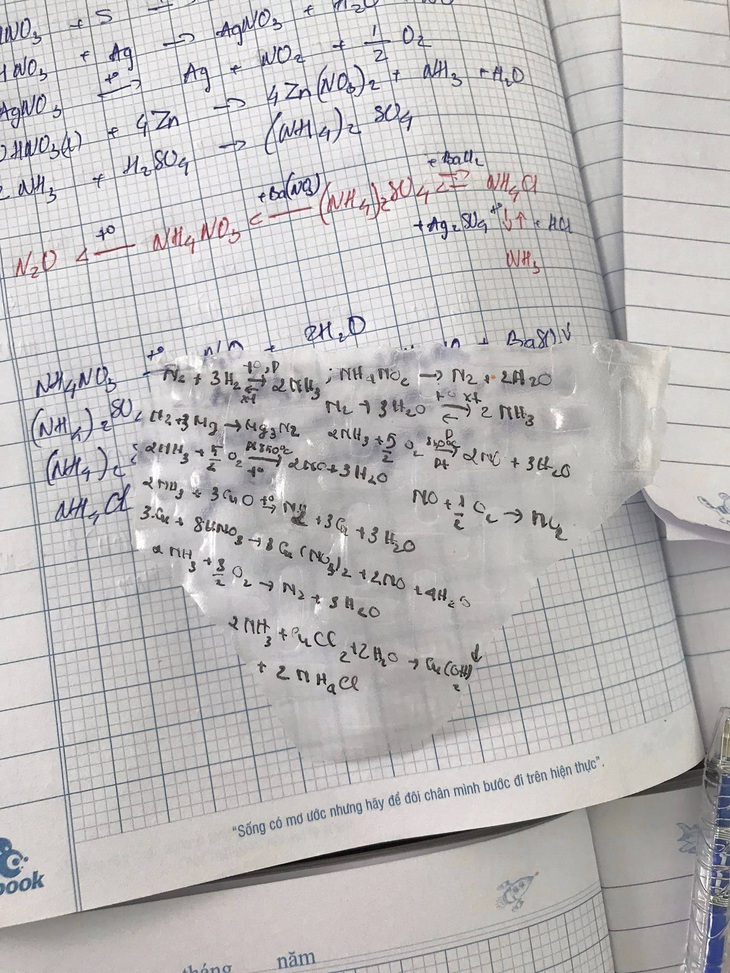 HNO₃ + S
HNO₃ + Ag → AgNO₃ + H₂O
AgNO₃ t° → Ag + NO₂ + 1/2 O₂
HNO₃(l) + 4Zn → 4Zn(NO₃)₂ + NH₃ + H₂O
NH₃ + H₂SO₄ → (NH₄)₂ SO₄
N₂O <—t° NH₄NO₃ <—+Ba(NO₃) (NH₄)₂SO₄ +BaCl₂ ⇌ NH₄Cl
+ Ag₂SO₄ t° ↓↑ + HCl
NH₃
NH₄NO₃ t° + 2H₂O
(NH₄)₂SO₄ + BaSO₄↓
(NH₄)₂
NH₄Cl
N₂ + 3H₂ t°,P ⇌ xt 2NH₃ ; NH₄NO₂ → N₂ + 2H₂O
N₂ + 3H₂O t° xt ⇌ 2NH₃
N₂+3Mg → Mg₃N₂ 2NH₃ + 5/2 O₂ P Pt 2NO + 3H₂O
2NH₃ + 5/2 O₂ Pt 850°C → t° 2NO + 3H₂O
2NH₃ + 3CuO t° → N₂ + 3Cu + 3H₂O NO + 1/2 O₂ → NO₂
3Cu + 8HNO₃ → 3Cu(NO₃)₂ + 2NO + 4H₂O
2NH₃ + 3/2 O₂ → N₂ + 3H₂O
2NH₃ + CuCl₂ + 2H₂O → Cu(OH)₂↓
+ 2NH₄Cl
"Sống có mơ ước nhưng hãy để đôi chân mình bước đi trên hiện thực".
book
tháng năm